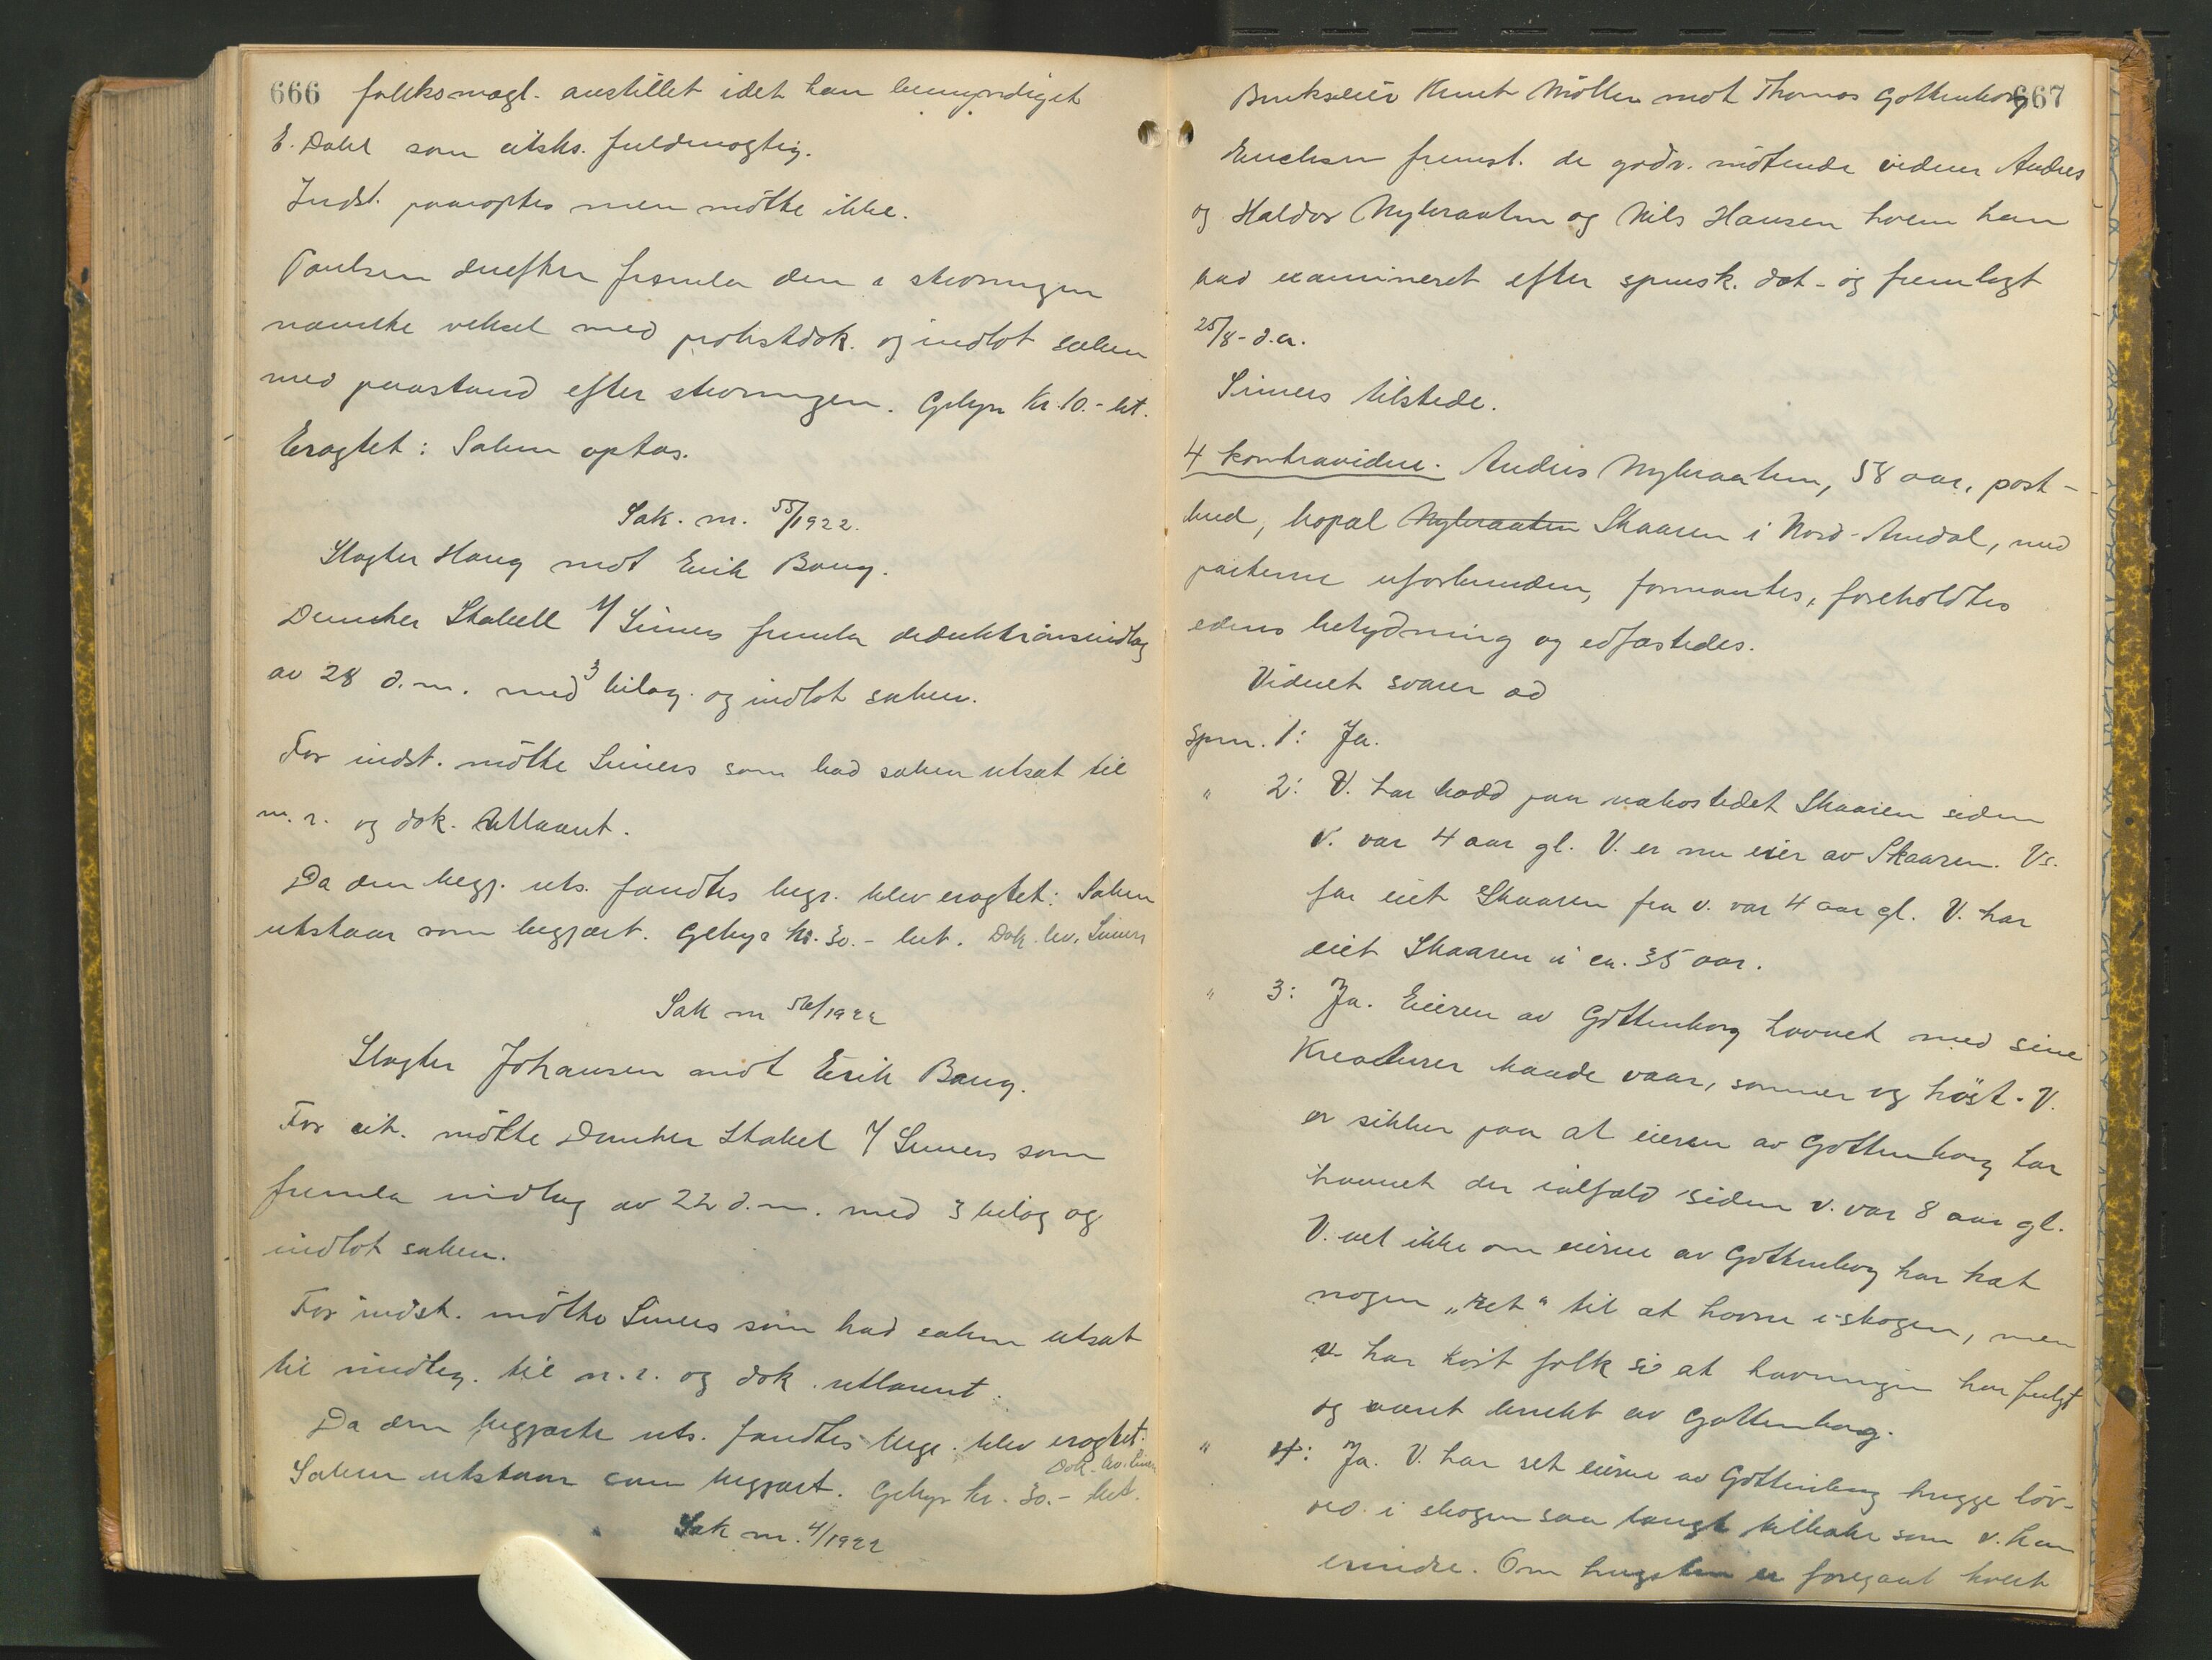 666
forliksmægl. anstillet idet han bemyndiget
E. Dahl som citsks. fuldmægtig.
Indst. paaroptes men møtte ikke.
Paulsen derefter fremla den i stevningen
nævnte veksel med protestdok. og indlot saken
med paastand efter stevningen. Gebyr kr. 10.- bet.
Eragtet: Saken optas.
Sak. nr. 55/1922.
Slagter Haug mot Erik Baug.
Dencker Stabell f/ Simers fremla deduktionsindlæg
av 28 d.m. med 3 bilag og indlot saken.
For indst. møtte Simers som bad saken utsat til
n. r. og dok. utlaant.
Da den begj. uts. fandtes begr. blev eragtet: Saken
utstaar som begjært. Gebyr kr. 30.- bet. Dok. lev. Simers
Sak nr 56/1922
Slagter Johansen mot Erik Baug.
For cit. møtte Dencker Stabel f/ Simers som
fremla indlæg av 22 d.m. med 3 bilag og
indlot saken.
For indst. møtte Simers som bad saken utsat
til indlæg. til n.r. og dok. utlaant.
Da den begjærte uts. fandtes begr. blev eragtet:
Dok. lev. Simers
Saken utstaar som begjært. Gebyr kr. 30.- bet.
Sak nr. 4/1922
667
Brukseier Knut Møller mot Thomas Gottenborg
Erichsen fremst. de godv. møtende vidner Andres
og Haldor Nybraaten og Nils Hansen hvem han
bad examineret efter spmsk. dat. og fremlagt
25/8- d.a.
Simers tilstede.
4 kontravidne. Andres Nybraaten, 58 aar, post-
bud, bopæl Nybraaten Skaaren i Nord-Amdal, med
parterne uforbunden, formantes, foreholdtes
edens betydning og edfæstedes.
Vidnet svarer ad
Spm. 1: Ja.
" 2: V. har bodd paa nabostedet Skaaren siden
v. var 4 aar gl. V. er nu eier av Skaaren. Vs.
far eiet Skaaren fra v. var 4 aar gl. V. har
eiet Skaaren i ca. 35 aar.
" 3: Ja. Eieren av Gottenborg havnet med sine
Kreaturer baade vaar, sommer og høst. V.
er sikker paa at eieren av Gottenborg har
havnet der ialfald siden v. var 8 aar gl.
V. vet ikke om eierne av Gottenborg har hat
nogen „ret“ til at havne i skogen, men
v. har hørt folk si at havningen har fulgt
og været brukt av Gottenborg.
" 4: Ja. V. har set eierne av Gottenborg hugge løv-
ved i skogen saa langt tilbake som v. kan
erindre. Om hugsten er foregaat hvert